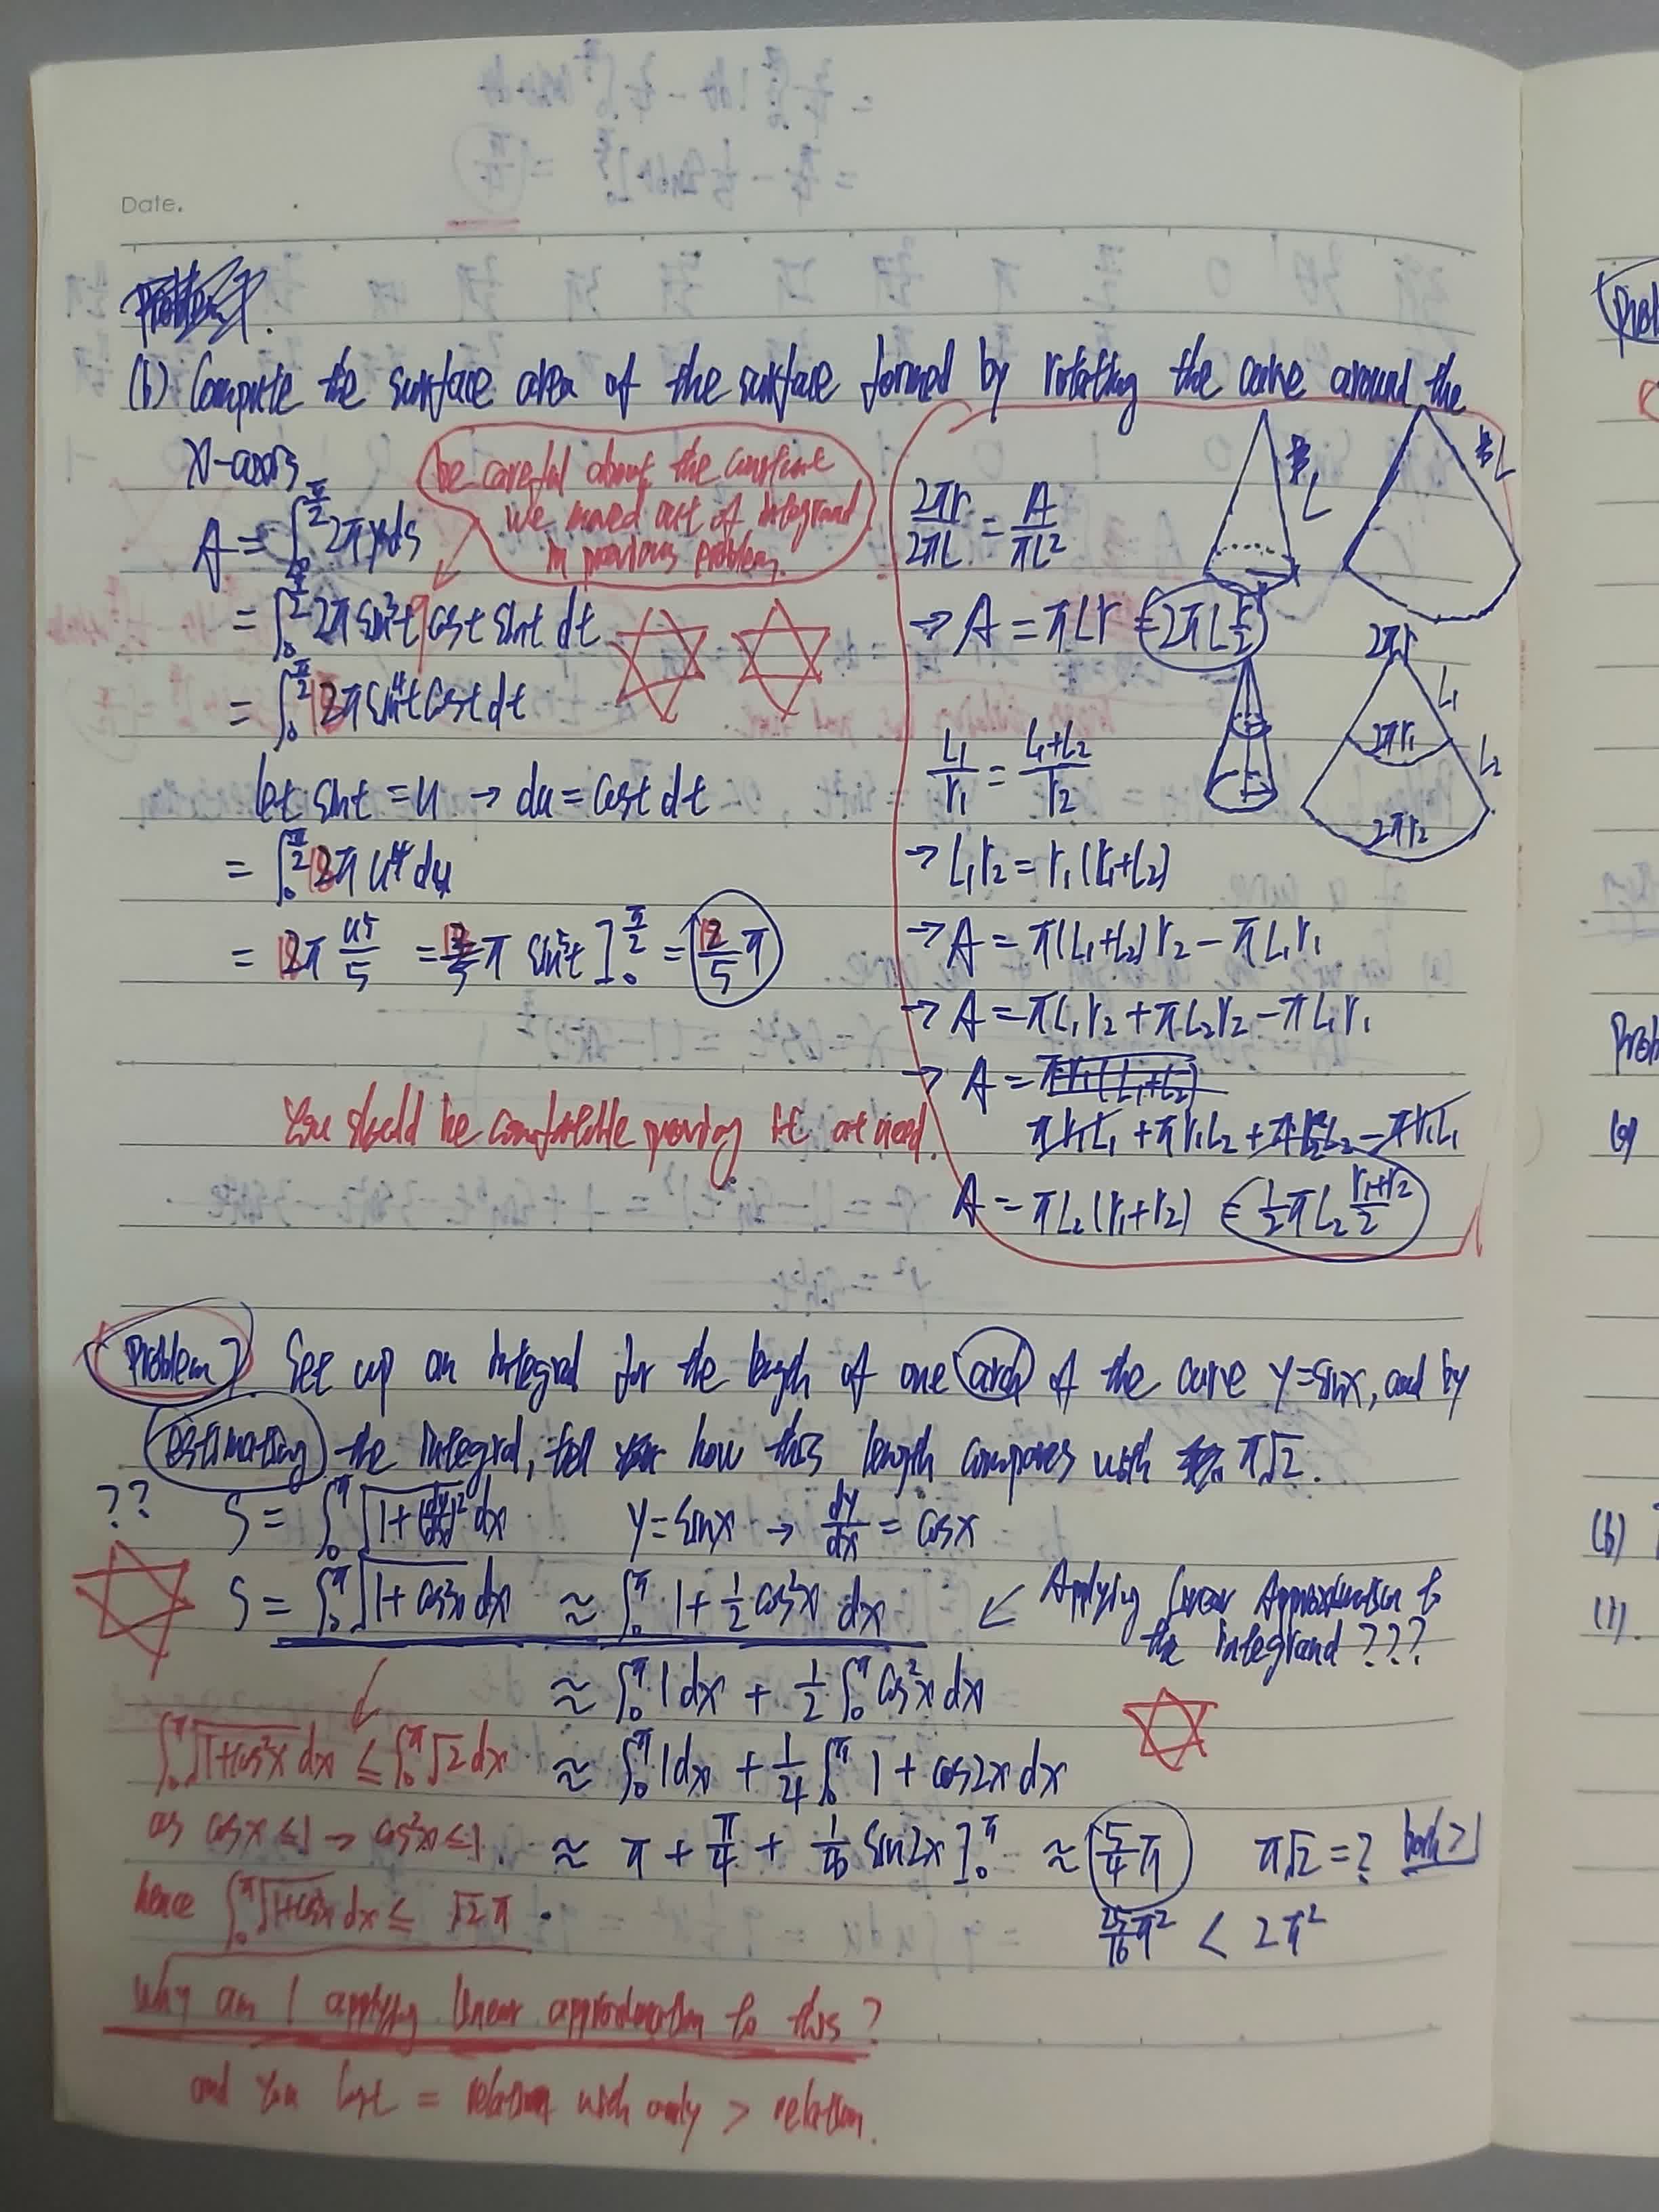 Date.
(b) Compute the surface area of the surface formed by rotating the curve around the
x-axis
be careful about the constant
we moved out of integrand
in previous problem.
A = ∫₀^(π/2) 2π y ds
= ∫₀^(π/2) 2π sin³t cost sint dt
= ∫₀^(π/2) 12π sin⁴t cost dt
let sint = u → du = cost dt
= ∫₀^(π/2) 12π u⁴ du
= 12π u⁵/5 = 12/5 π sin⁵t ]₀^(π/2) = 12/5 π
You should be comfortable proving it at need.
2πr/2πL = A/πL²
L
L
→ A = πLr = 2πL r/2
2πr
L₁
2πr₁
L₂
2πr₂
L₁/r₁ = L₁+L₂/r₂
→ L₁r₂ = r₁(L₁+L₂)
→ A = π(L₁+L₂)r₂ − πL₁r₁
→ A = πL₁r₂ + πL₂r₂ − πL₁r₁
→ A = πr₁(L₁+L₂)
πr₁L₁ + πr₁L₂ + πr₂L₂ − πr₁L₁
A = πL₂(r₁+r₂) = 1/2 πL₂ r₁+r₂/2
Problem 7. Set up an integral for the length of one arch of the curve y=sinx, and by
estimating the integral, tell how this length compares with π√2.
?? S = ∫₀^π √(1+(dy/dx)²) dx y=sinx → dy/dx = cosx
S = ∫₀^π √(1+cos²x) dx ≈ ∫₀^π 1+½cos²x dx ↙ Applying linear Approximation to
the integrand ???
≈ ∫₀^π 1dx + ½ ∫₀^π cos²x dx
∫₀^π √(1+cos²x) dx ≤ ∫₀^π √2 dx
≈ ∫₀^π 1dx + ¼ ∫₀^π 1 + cos2x dx
as cosx ≤ 1 → cos²x ≤ 1.
≈ π + π/4 + sin2x ]₀^π ≈ 5/4 π π√2 = ?
hence ∫₀^π √(1+cos²x) dx ≤ √2 π.
25/16 π² < 2π²
Why am I applying linear approximation to this?
and you lost = relation with only > relation.